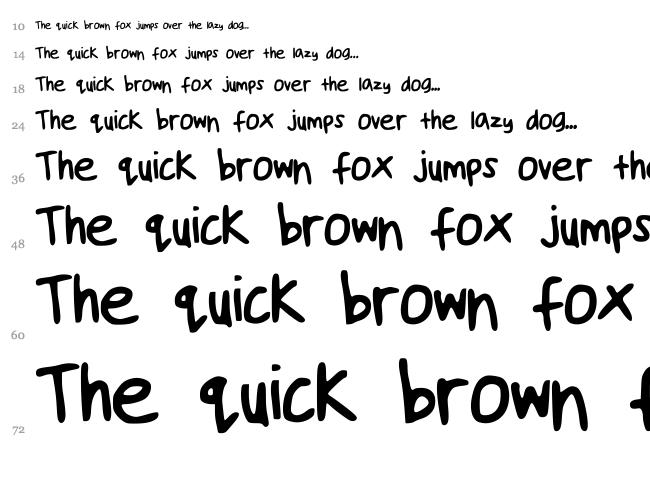 10 The quick brown fox jumps over the lazy dog...
14 The quick brown fox jumps over the lazy dog...
18 The quick brown fox jumps over the lazy dog...
24 The quick brown fox jumps over the lazy dog...
36 The quick brown fox jumps over th
48 The quick brown fox jumps
60 The quick brown fox
72 The quick brown f